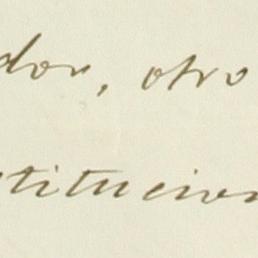 dor, otro
titucion